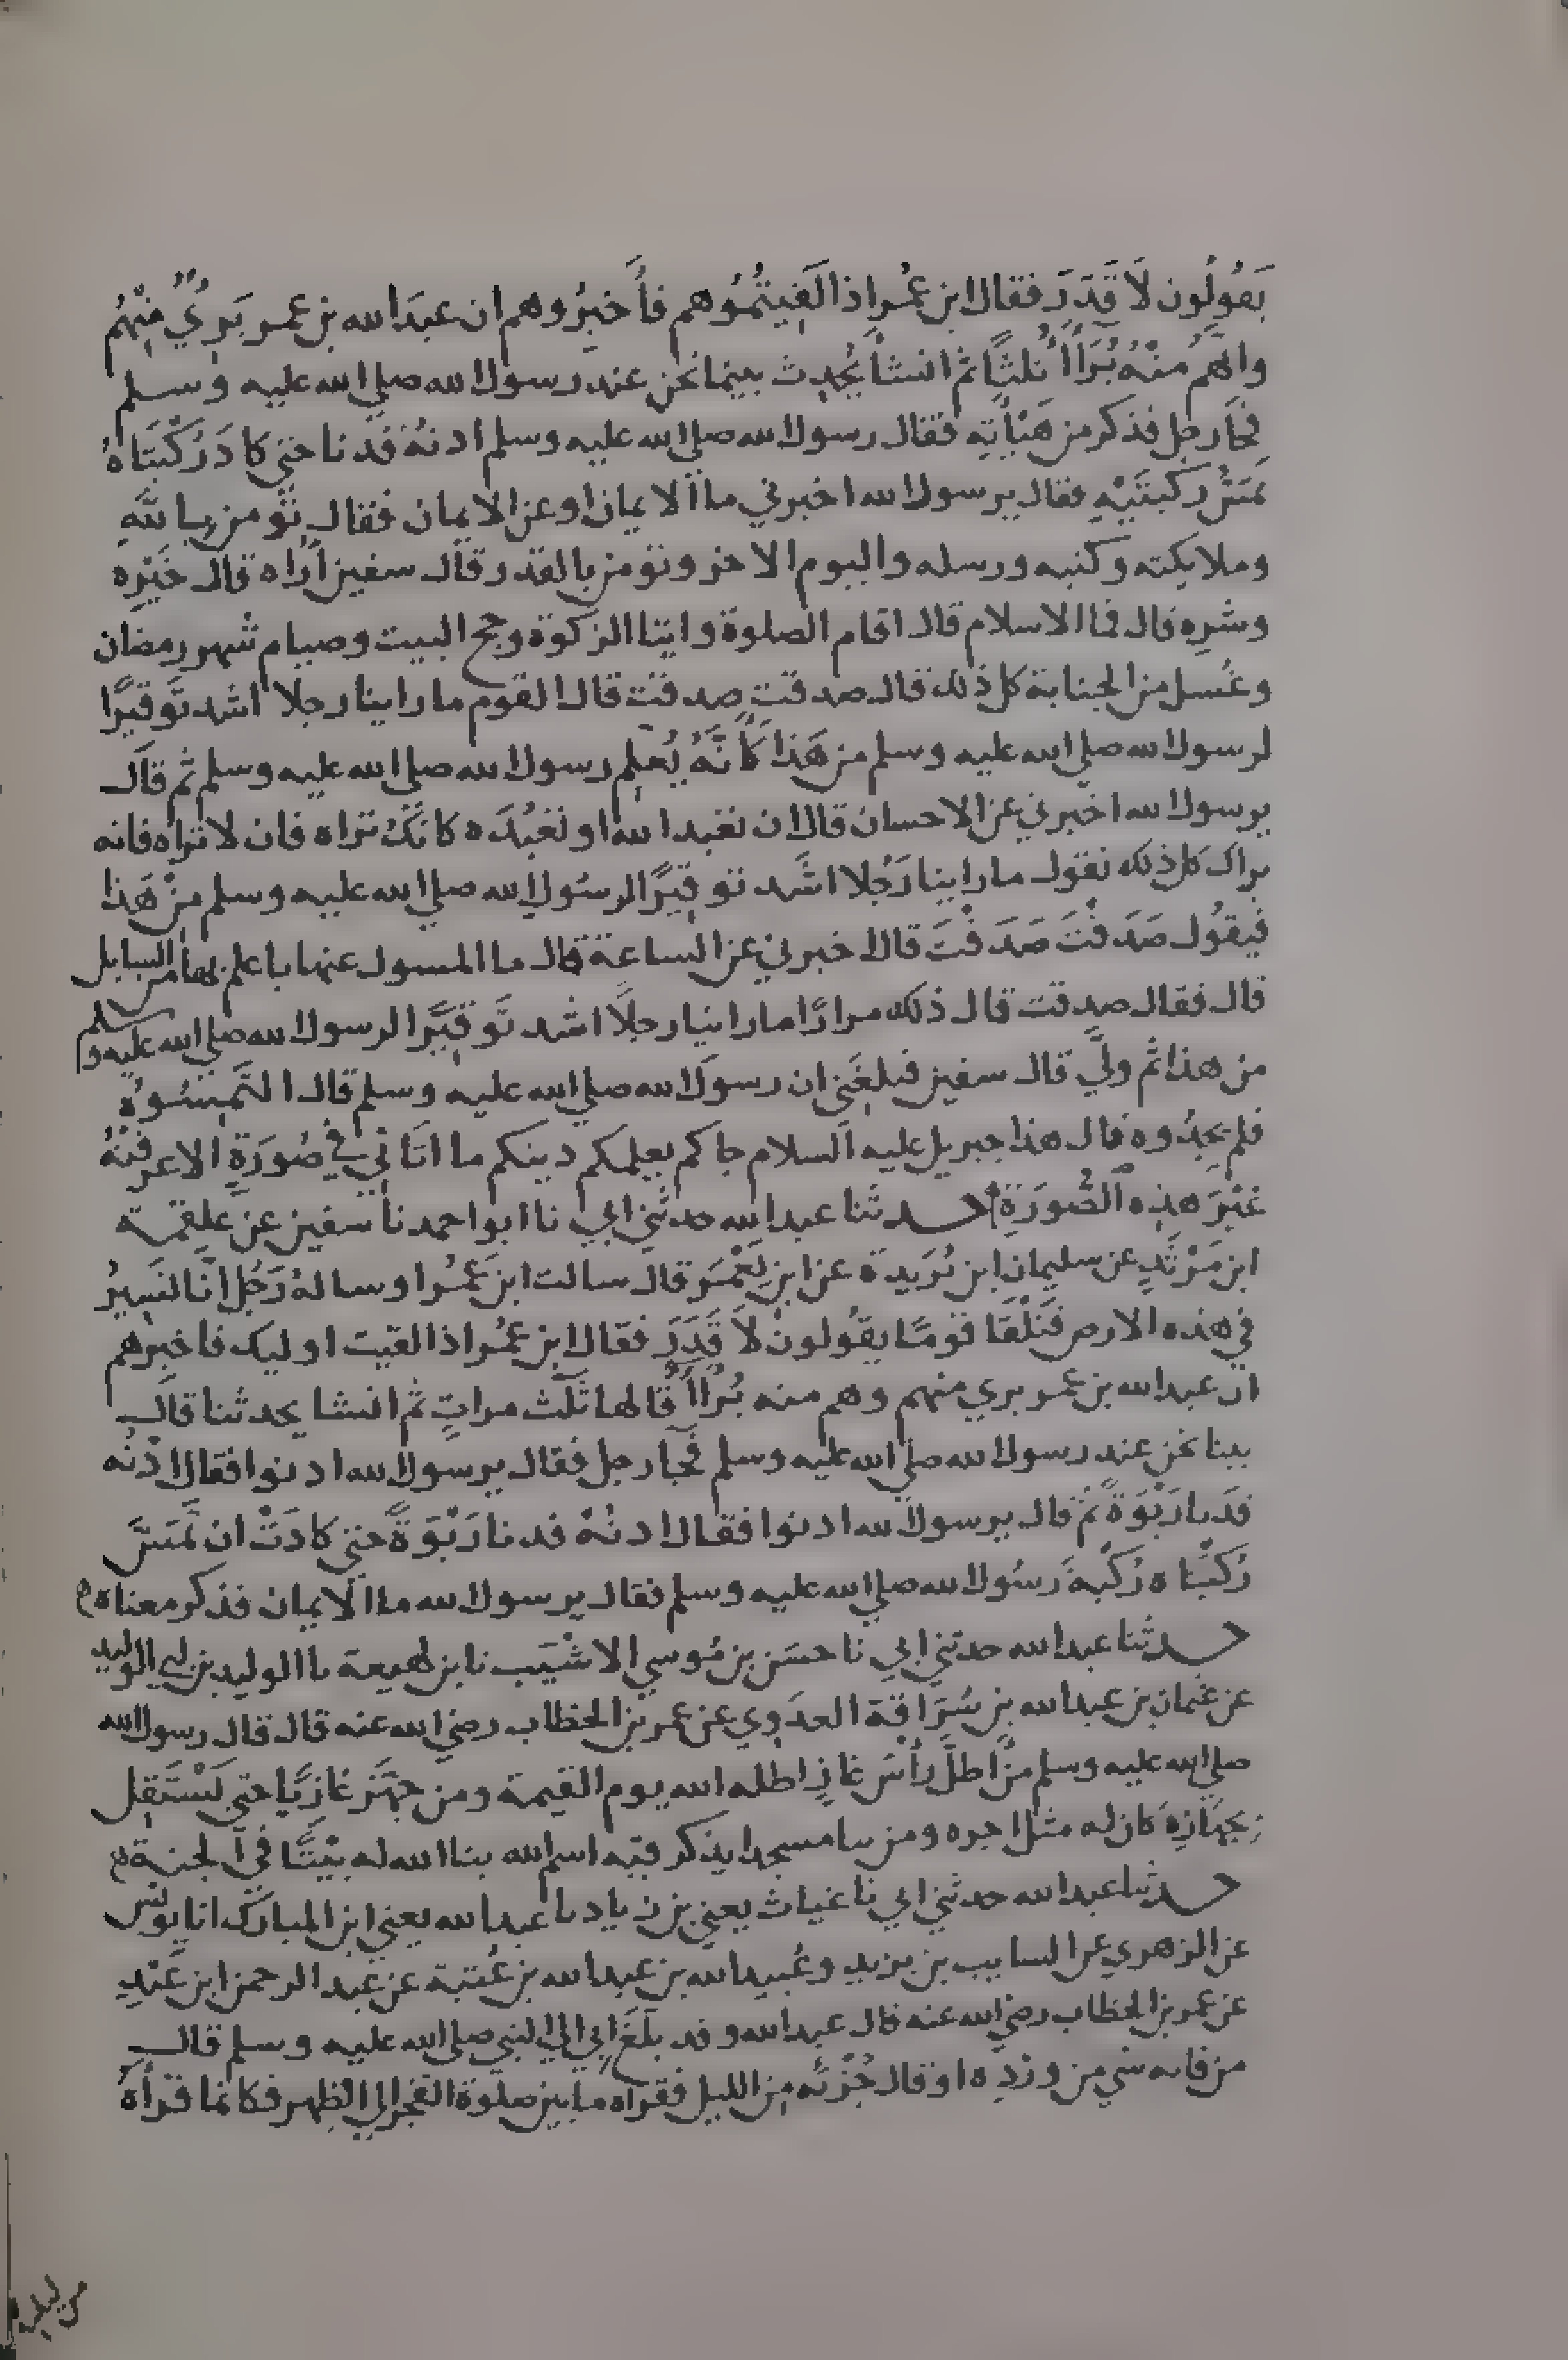 يَقُولُون لَا قَدَرَ فقال ابن عُمر اذا لَقِيتُمُوهم فأَخبِرُوهم ان عبدَ الله بن عمر بَرِيٌ مِنْهُم
وانهم منْهُ بُرَآأُ ثلثًا ثم انشأ يُحدِث بينما نحن عند رسول الله صلي الله عليه وسلم
فجآ رجل فذكر من هَيْأتِه فقال رسول الله صلي الله عليه وسلم ادنُهْ فدنا حتي كادَ رُكْبَتَاهُ
تَمَسُّ رُكبتَيْهِ فقال يرسول الله اخبرني ما الايمان او عن الايمان فقال تؤمن بالله
وملايكته وكتبه ورسله واليوم الاخر وتؤمن بالقدر قال سفين أُراه قال خَيْرِه
وشرِه قال فما الاسلام قال اقام الصلوة وايتا الزكوة وحج البيت وصيام شهر رمضان
وغُسل من الجنابة كل ذلك قال صدقت صدقت قال القوم ما راينا رجلا اشد تَوقيرًا
لرسول الله صلي الله عليه وسلم من هَذا كَأنَّهُ يُعلِم رسول الله صلي الله عليه وسلم ثم قال
يرسول الله اخبرني عن الاحسان قال ان تعبد الله او تَعْبُدَه كانكَ تراه فان لا تراه فانه
يراك كل ذلك نقول ما راينا رَجُلا اشَد توقِيرًا لرسُول الله صلي الله عليه وسلم مِنْ هَذا
فَيقوُل صَدَقْتَ صَدَقْتَ قال اخبرني عن الساعة قال ما المسول عنها باعلم بها من السايل
قال فقال صدقت قال ذلك مرارًا ما راينا رجلًا اشد تَوقيرًا لرسول الله صلي الله عليه وسلم
من هذا ثُم ولَّي قال سفين فبلغَني ان رسول الله صلي الله عليه وسلم قال التَمِسُوُه
فلم يجِدُوه قال هذا جبريل عليه السلام جاكم يعلمكم دينكم ما اتَاني في صُورَةٍ الا عرفتُهُ
غيْرَ هذِه الصُّورَةِ حدثنا عبد الله حدثني ابي نا ابو احمد نا سفين عن علقمة
ابن مَرْثَدٍ عن سليمان ابن بُرَيدة عن ابن يَعْمَر قال سالت ابن عُمَر او سالهُ رَجُل انّا لنَسِيرُ
في هذه الارض فَنَلْقَا قومًا يقُولونْ لَا قَدَرَ فقال ابن عُمر اذا لقيت اوليك فاخبرهم
ان عبد الله بن عمر بري منهم وهم منه بُرآأُ قالها ثَلَث مراتٍ ثم انشا يحدثنا قال
بينا نحن عند رسول الله صلي الله عليه وسلم فجآ رجل فقال يرسول الله ادنوا فقال ادْنُه
فدَنا رَتْوَةً ثم قال يرسول الله ادنوا فقال ادنُهْ فدنا رَتْوَةً حتي كادَتْ ان تَمَسَّ
رُكبَتَاه رُكْبَةَ رسُول الله صلي الله عليه وسلم فقال يرسول الله ما الايمان فذكر معناه
حدثنا عبد الله حدثني ابي نا حسَن بن مُوسي الاشْيَب نا بن لهيعة نا الوليد بن ابي الوليد
عن عثمان بن عبد الله بن سُرَاقة العدَوِي عن عمر بن الخطاب رضي الله عنه قال قال رسول الله
صلي الله عليه وسلم من اظلّ رأسَ غازٍ اظله الله يوم القيمة ومن جَهّزَ غازيًا حتي يَسْتَقِل
بِجَهَازِهِ كان له مثل اجره ومن بنا مسجدا يذكر فيه اسم الله بنا الله له بيْتًا في الجنة
حدثنا عبد الله حدثني ابي نا غياث يعني بن زياد نا عبد الله يعني ابن المبارك انا يونس
عن الزهري عن السايب بن يزيد وعُبيد الله بن عبد الله بن عُتبة عن عبد الرحمن ابن عَبْدٍ
عن عمر بن الخطاب رضي الله عنه قال عبد الله وقد بلَغَ ابي الي النبي صلي الله عليه وسلم قال
من فاته شي من وِرْدِه او قال جُزْئه مِن الليل فقرأه ما بين صلوة الفجر الي الظهر فكانما قرأهُ
من ليلته